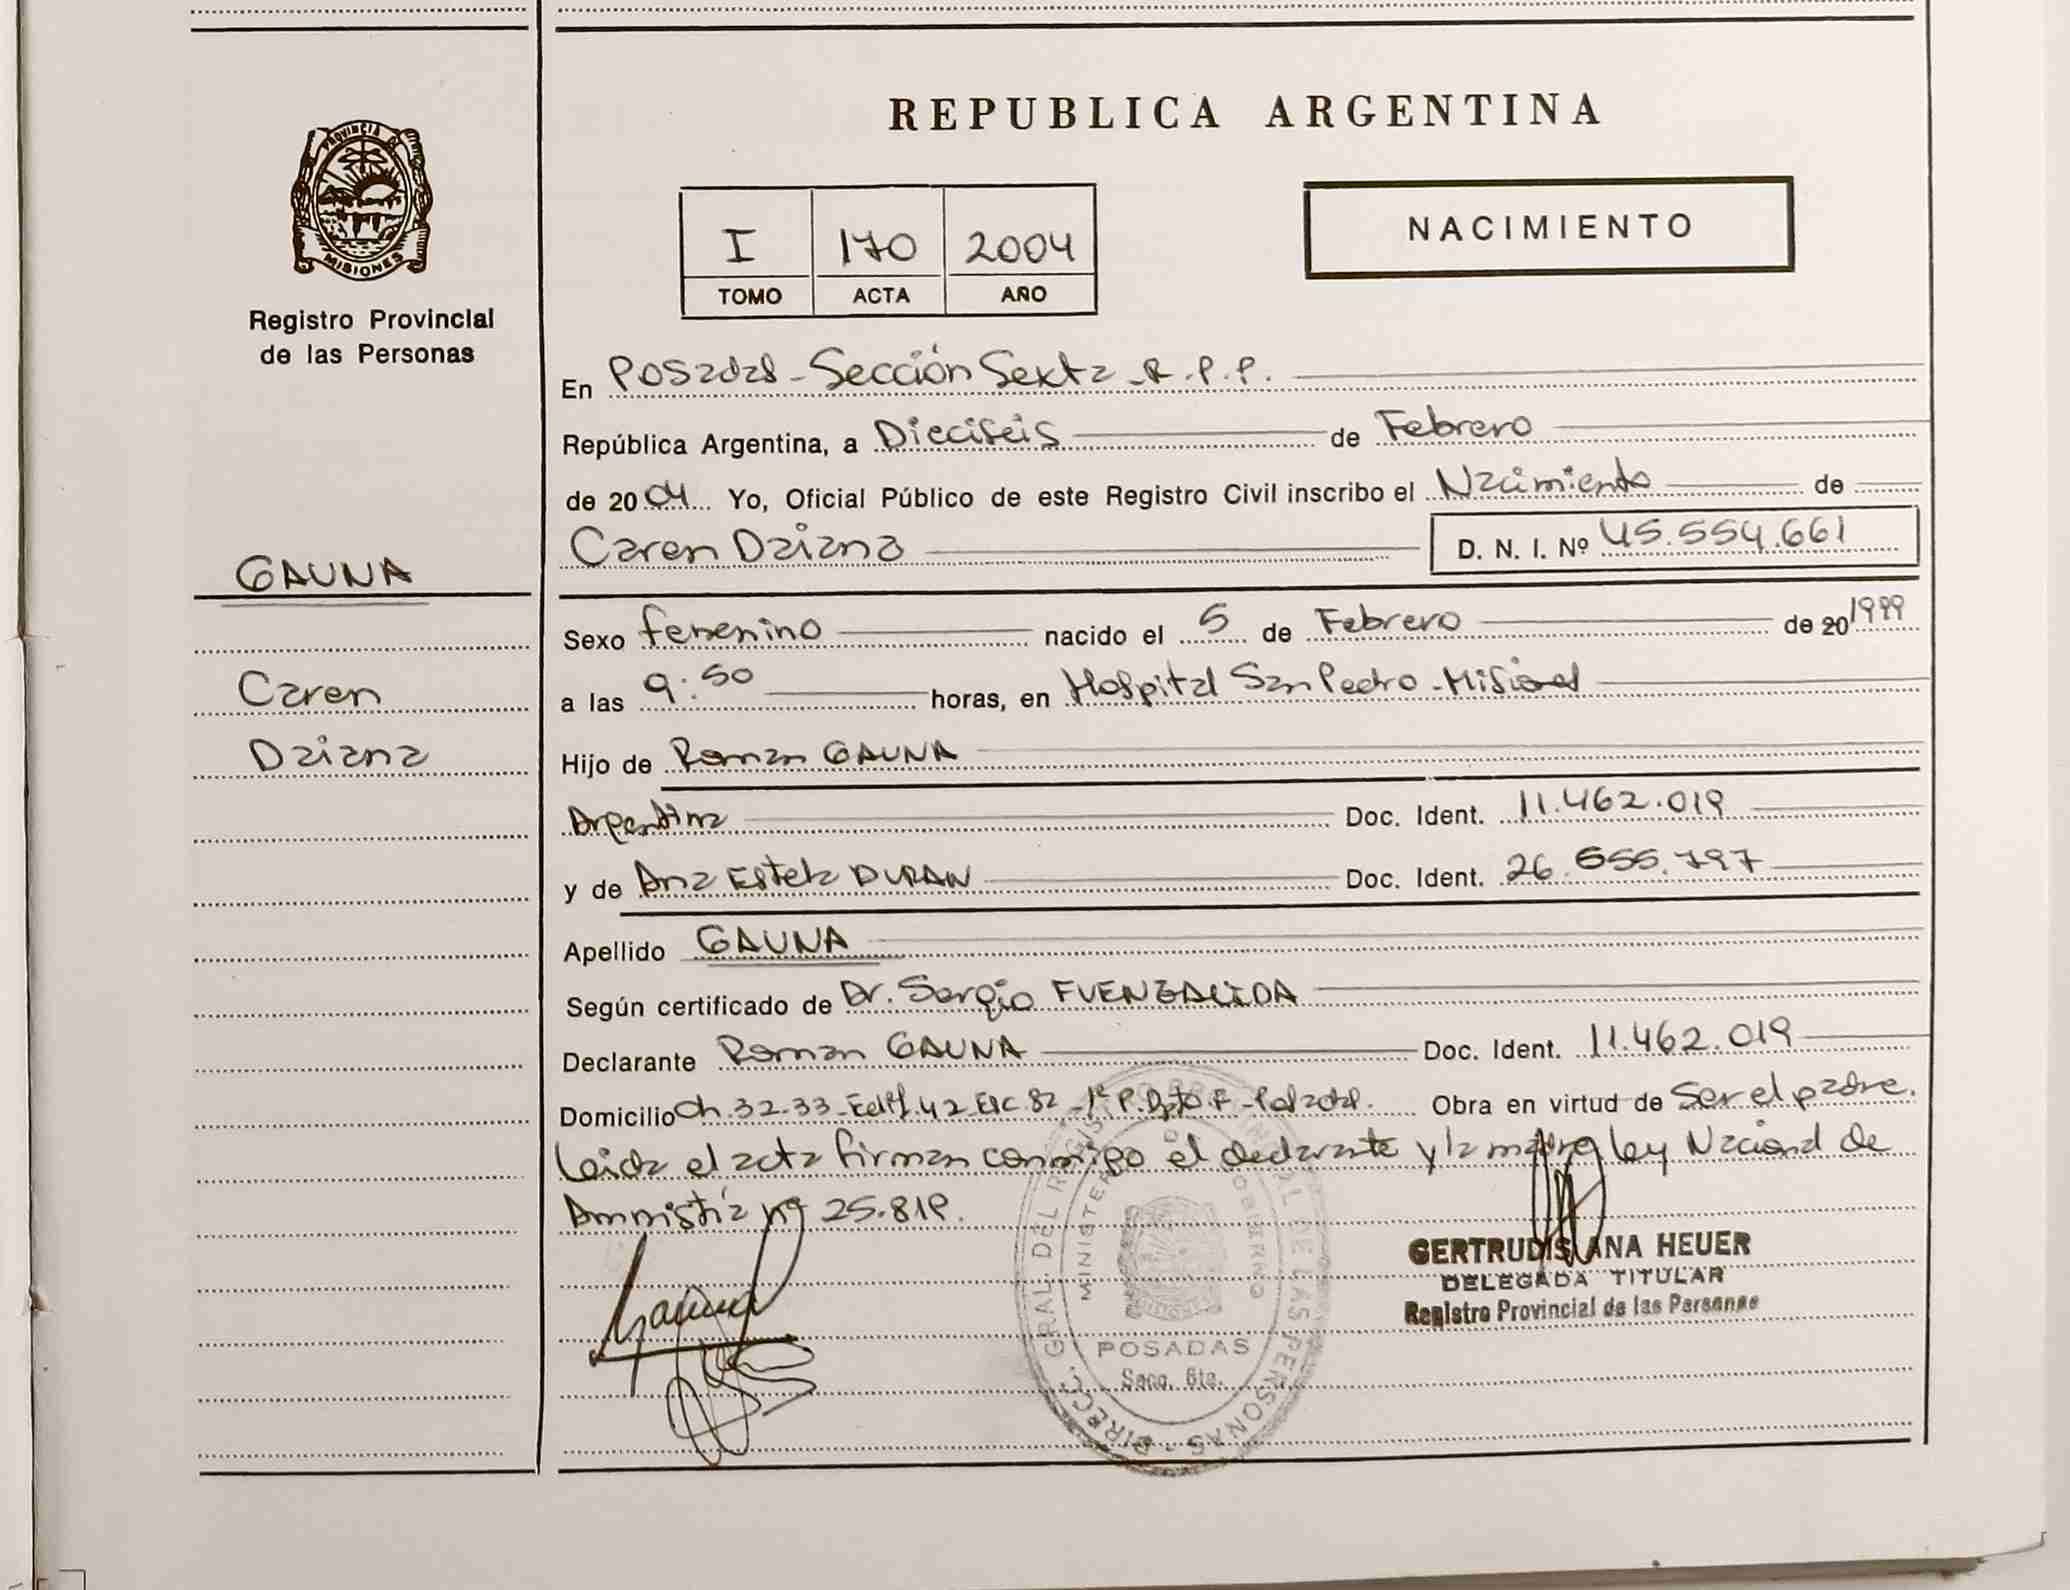 REPUBLICA ARGENTINA
PROVINCIA DE
MISIONES
Registro Provincial
de las Personas
NACIMIENTO
I 170 2004
TOMO ACTA AÑO
En Posadas - Sección Sexta - R.P.P.
República Argentina, a Dieciseis de Febrero
de 2004 Yo, Oficial Público de este Registro Civil inscribo el Nacimiento de
Caren Daiana D. N. I. Nº 45.554.661
GAUNA
Caren
Daiana
Sexo femenino nacido el 5 de Febrero de 20 1999
a las 9:50 horas, en Hospital San Pedro - Misiones
Hijo de Roman GAUNA
Argentina Doc. Ident. 11.462.019
y de Ana Estela DURAN Doc. Ident. 26.555.797
Apellido GAUNA
Según certificado de Dr. Sergio FUENZALIDA
Declarante Roman GAUNA Doc. Ident. 11.462.019
Domicilio Ch. 32-33 - Edif. 42 Esc. 82 - 1º P. Dpto F - Posadas. Obra en virtud de Ser el padre.
Leida el acta firman conmigo el declarante y la madre ley Nacional de
Amnistía nº 25.819.
Gauna
DIRECC. GRAL. DEL REGISTRO PROVINCIAL DE LAS PERSONAS
MINISTERIO DE GOBIERNO
POSADAS
Secc. 6ta.
GERTRUDIS ANA HEUER
DELEGADA TITULAR
Registro Provincial de las Personas